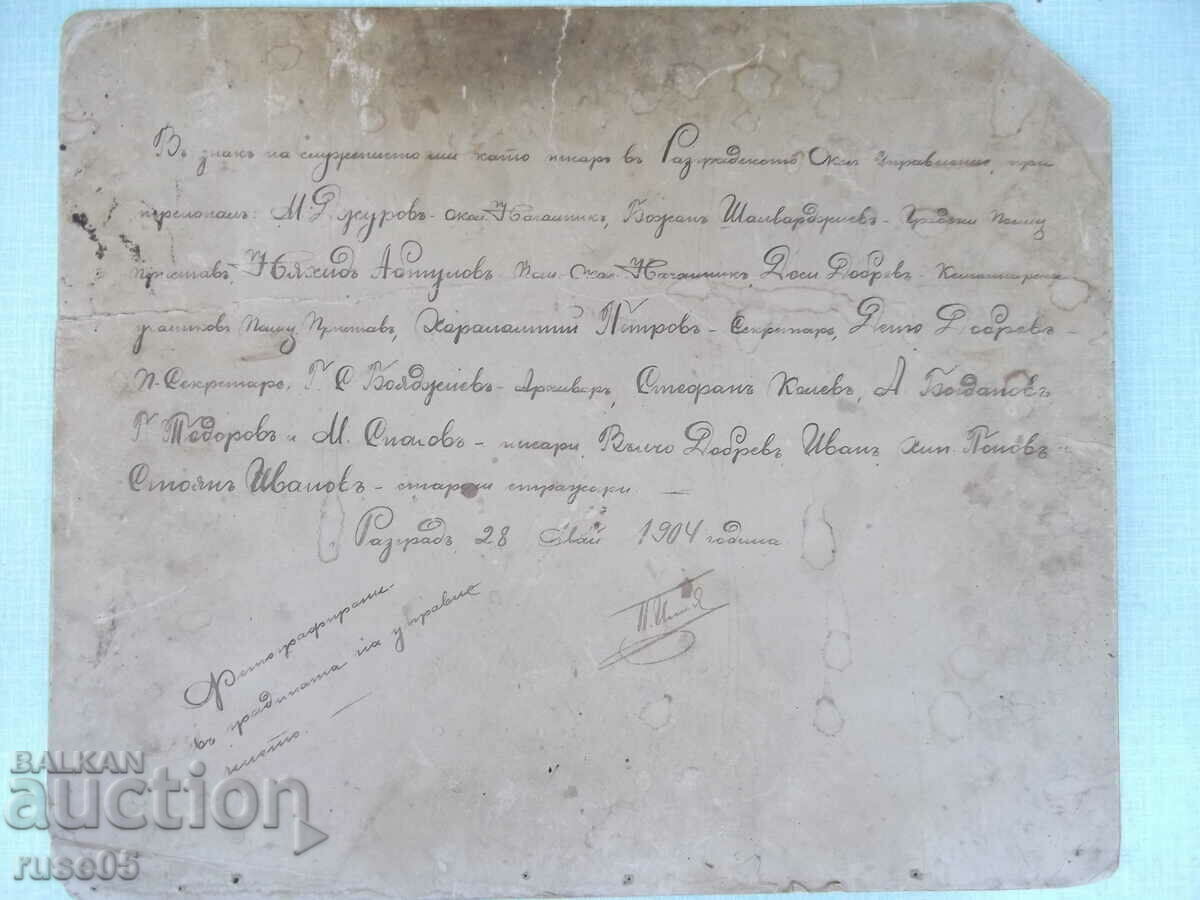 Въ знакъ на служението ми като писарь въ Разградското Окол. Управление, при
персонала: М. Джуровъ - окол. Началникъ, Божанъ Шалварджиевъ - Градски Полиц.
Приставъ, Абтуловъ Пом. Окол. Началникъ, Доси Добревъ -
участъковъ Полиц. Приставъ, Харалампий Петровъ - Секретарь, Дешо Добревъ -
П. Секретарь, Г. С. Бояджиевъ - Архиваръ, Стефанъ Колевъ, А. Богдановъ
Г. Тодоровъ и М. - писари, Вълчо Добревъ, Иванъ Поповъ
Стоянъ Ивановъ - старши стражари. —
Разградъ, 28 Май 1904 година
Фотографирани
въ градината на управле
нието. —
BALKAN
auction
ruse05